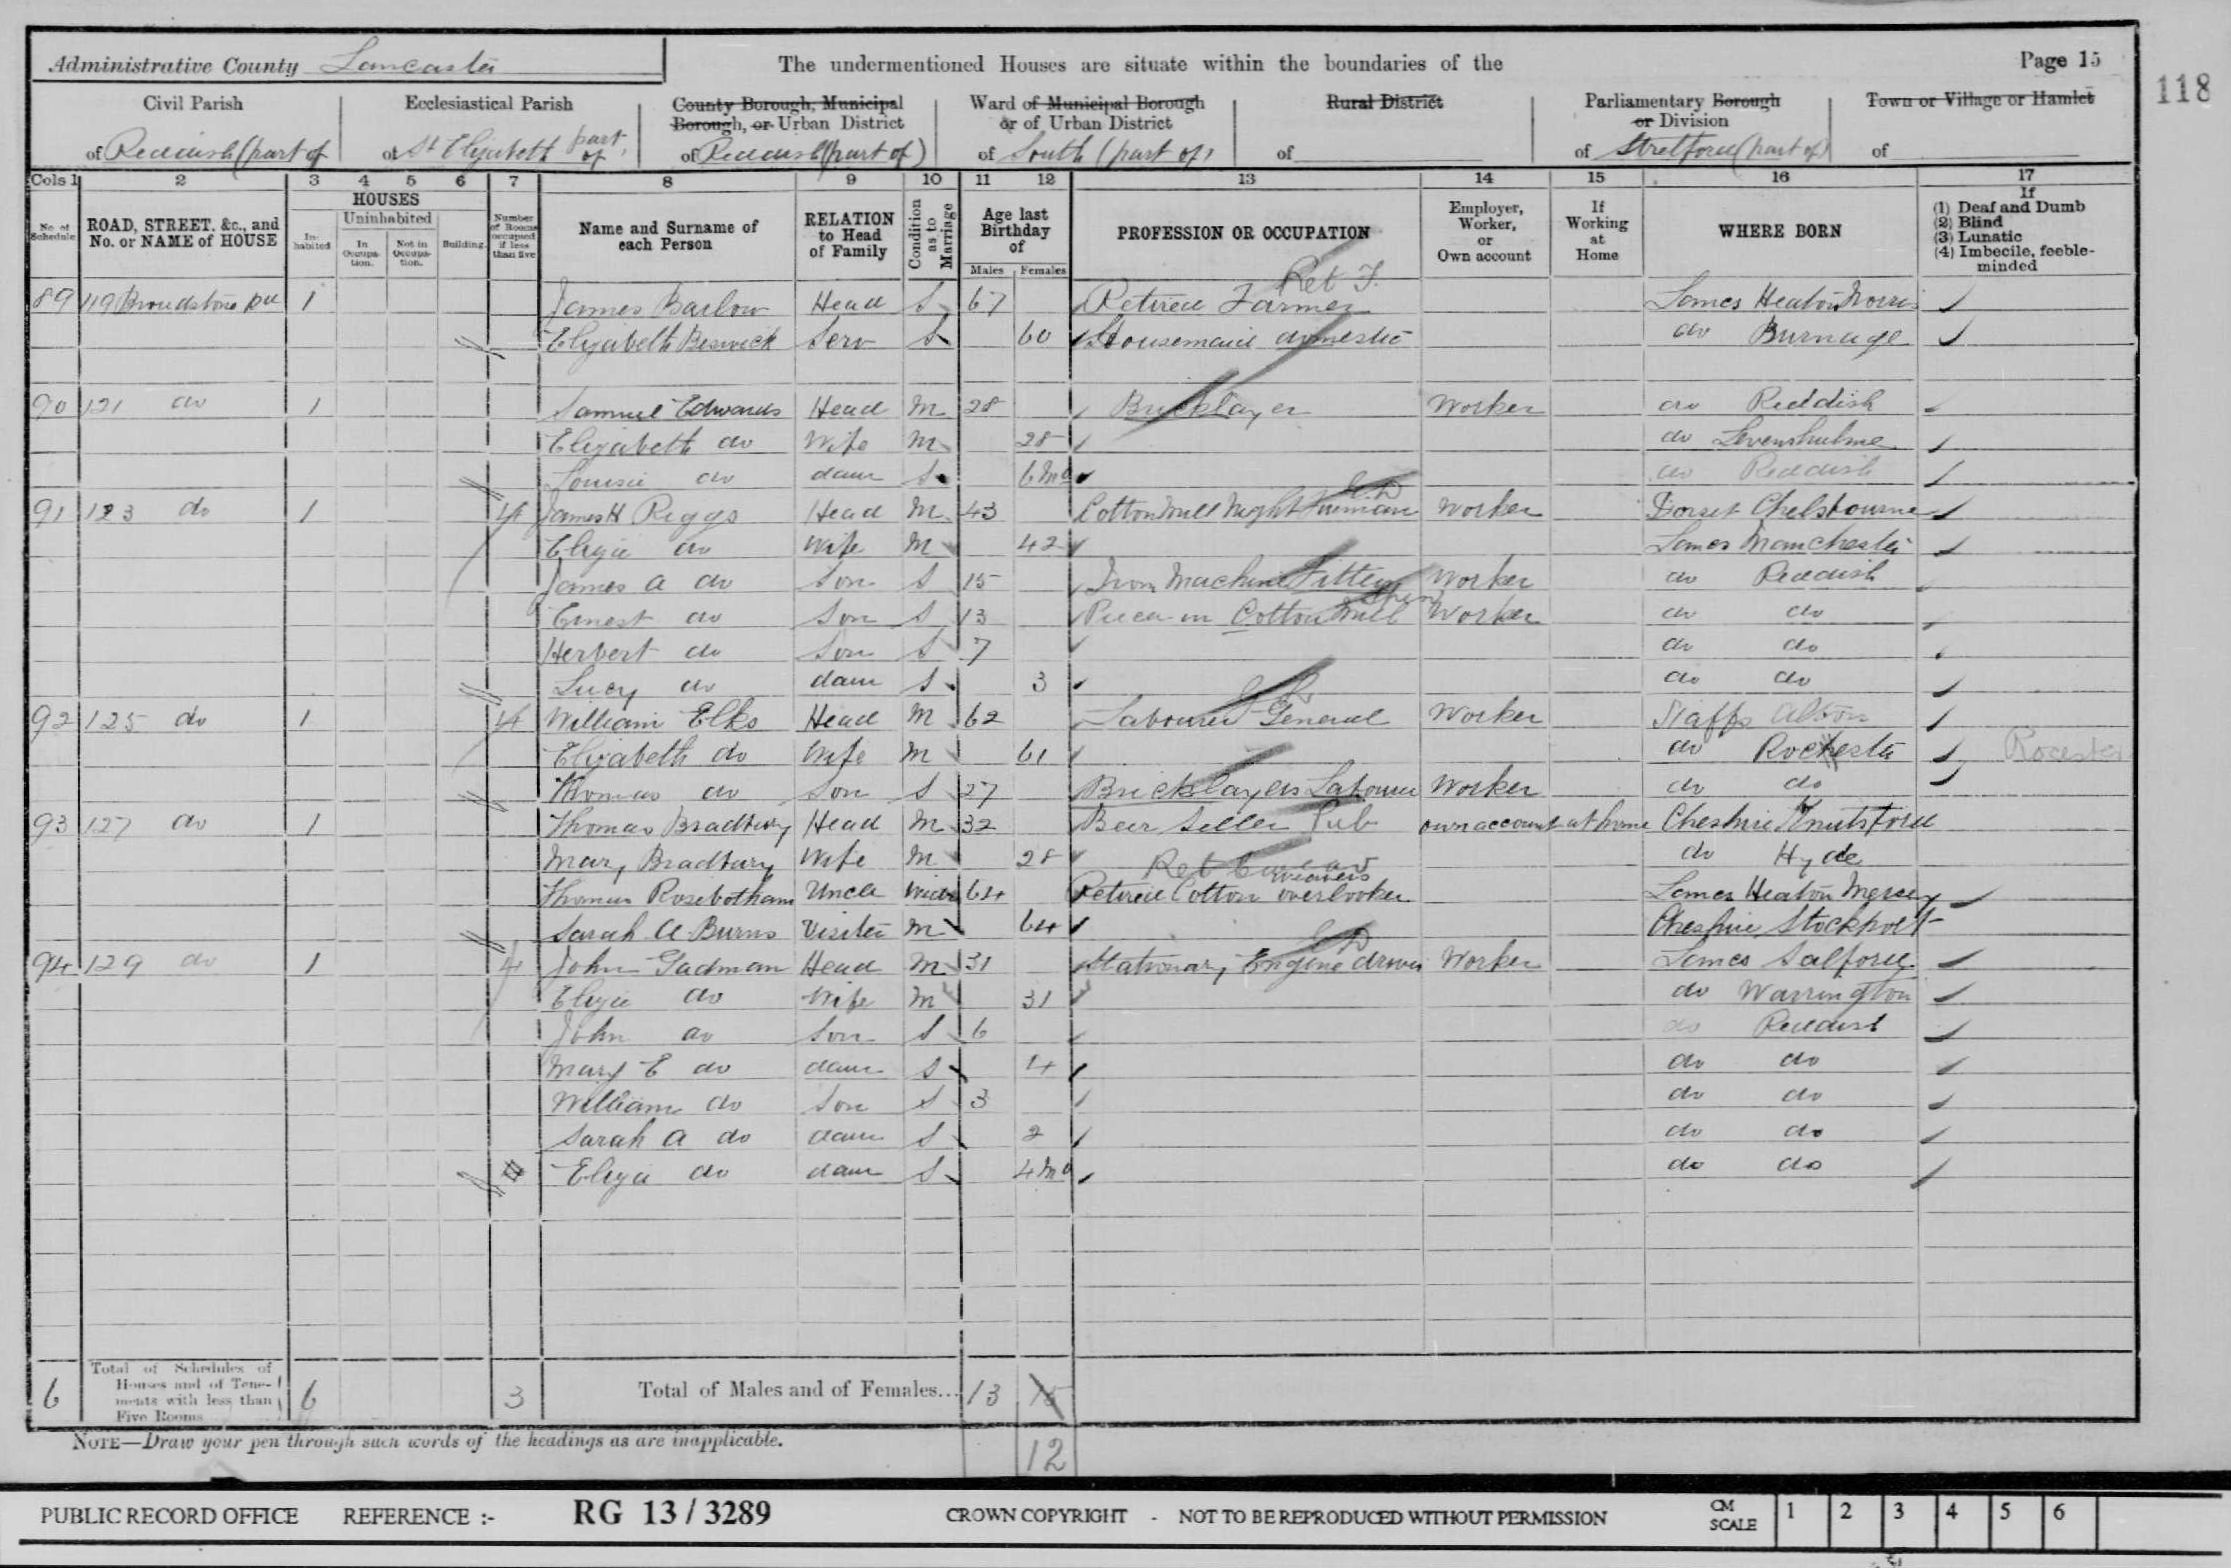 Administrative County Lancaster
The undermentioned Houses are situate within the boundaries of the
Page 15
118
Civil Parish
Ecclesiastical Parish
County Borough, Municipal Borough, or Urban District
Ward of Municipal Borough or of Urban District
Rural District
Parliamentary Borough or Division
Town or Village or Hamlet
of Reddish (part of
of St Elizabeth part of
of Reddish (part of)
of South (part of)
of
of Stretford (part of)
of
Cols 1 2 3 4 5 6 7 8 9 10 11 12 13 14 15 16 17
No. of Schedule
ROAD, STREET, &c., and No. or NAME of HOUSE
HOUSES
Inhabited
Uninhabited
In Occupation.
Not in Occupation.
Building.
Number of Rooms occupied if less than five
Name and Surname of each Person
RELATION to Head of Family
Condition as to Marriage
Age last Birthday of
Males Females
PROFESSION OR OCCUPATION
Employer, Worker, or Own account
If Working at Home
WHERE BORN
If
(1) Deaf and Dumb
(2) Blind
(3) Lunatic
(4) Imbecile, feeble-minded
Ret F.
89 119 Broadstone Rd 1 James Barlow Head S 67 Retired Farmer Lancs Heaton Norris
Elizabeth Beswick Serv S 60 Housemaid domestic do Burnage
90 121 do 1 Samuel Edwards Head M 28 Bricklayer Worker do Reddish
Elizabeth do Wife M 28 do Levenshulme
Louisa do daur S 6 Mo do Reddish
91 123 do 1 4 James H Riggs Head M 43 Cotton Mill Night Fireman Worker Dorset Chelsbourne
Eliza do Wife M 42 Lancs Manchester
James A do Son S 15 Iron Machine Fitter Worker do Reddish
Ernest do Son S 13 Piecer in Cotton Mill Worker do do
Herbert do Son S 7 do do
Lucy do daur S 3 do do
92 125 do 1 4 William Elks Head M 62 Labourer General Worker Staffs Alton
Elizabeth do Wife M 61 do Rochester Rocester
Thomas do Son S 27 Bricklayers Labourer Worker do do
93 127 do 1 Thomas Bradbury Head M 32 Beer Seller Pub own account at home Cheshire Knutsford
Mary Bradbury Wife M 28 do Hyde
Thomas Rosebotham Uncle Widr 64 Retired Cotton weavers overlooker Lancs Heaton Mersey
Sarah A Burns Visitor M 64 Cheshire Stockport
94 129 do 1 4 John Gadman Head M 31 Stationary Engine driver Worker Lancs Salford
Eliza do Wife M 31 do Warrington
John do Son S 6 do Reddish
Mary E do daur S 4 do do
William do Son S 3 do do
Sarah A do daur S 2 do do
Eliza do daur S 4 Mo do do
6 Total of Schedules of Houses and of Tenements with less than Five Rooms 6 3 Total of Males and of Females... 13 15
12
NOTE—Draw your pen through such words of the headings as are inapplicable.
PUBLIC RECORD OFFICE REFERENCE :- RG 13 / 3289 CROWN COPYRIGHT - NOT TO BE REPRODUCED WITHOUT PERMISSION CM SCALE 1 2 3 4 5 6